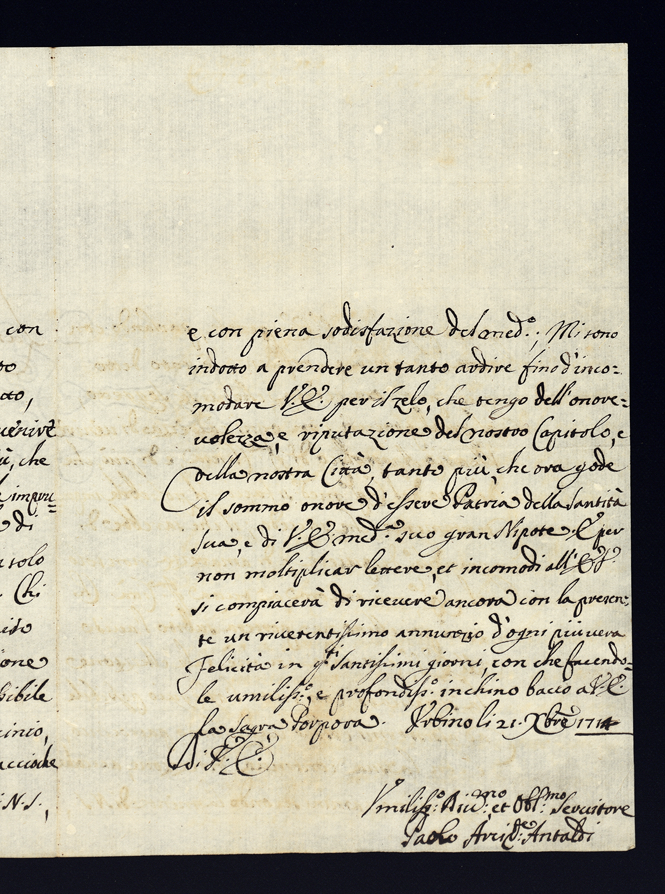 con
e con piena sodisfazione del med.º; Mi sono
indotto a prendere un tanto ardire fino d'inco=
modare V.E. per il zelo, che tengo dell'onore=
volezza, e riputazione del nostro Capitolo, e
della nostra Città, tanto più, che ora gode
il sommo onore d'essere Patria della Santità
Sua, e di V.E. med.º suo gran Nipote. E per
non moltiplicar lettere, et incomodi all'E.V.
si compiacerà di ricevere ancora con la presen=
te un riverentissimo annunzio d'ogni più vera
Felicità in q.ti Santissimi giorni, con che facendo=
le umiliss.º, e profondiss.º inchino bacio a V.E.
la Sagra Porpora. Urbino li 21. Xbre 1714
Di V.E.
Umiliss.º Div.mo, et Obl.mo Servitore
Paolo Arcid.º Antaldi
che
di
Chi
N.S.,